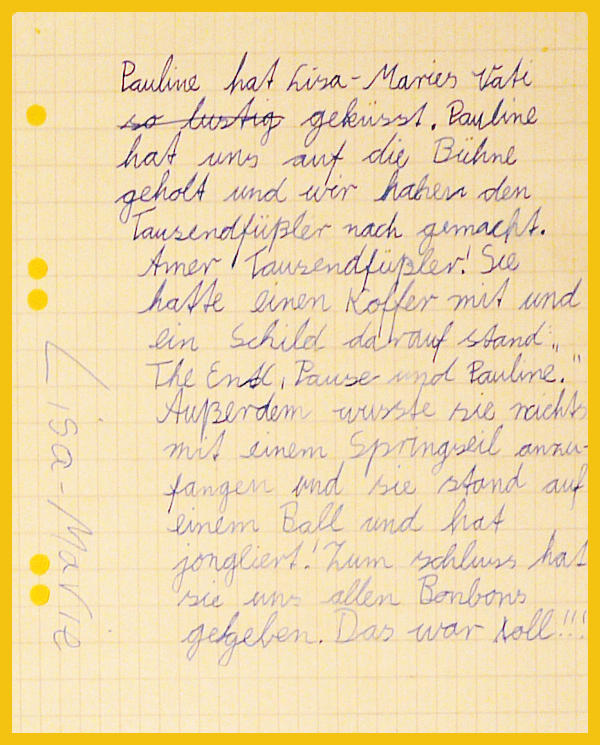 Pauline hat Lisa-Maries Vati
so lustig geküsst. Pauline
hat uns auf die Bühne
geholt und wir haben den
Tausendfüßler nach gemacht.
Amer Tausendfüßler! Sie
hatte einen Koffer mit und
ein Schild darauf stand: „
The End, Pause und Pauline."
Außerdem wusste sie nichts
mit einem Springseil anzu-
fangen und sie stand auf
einem Ball und hat
jongliert! Zum schluss hat
sie uns allen Bonbons
gegeben. Das war toll!!!
Lisa-Marie